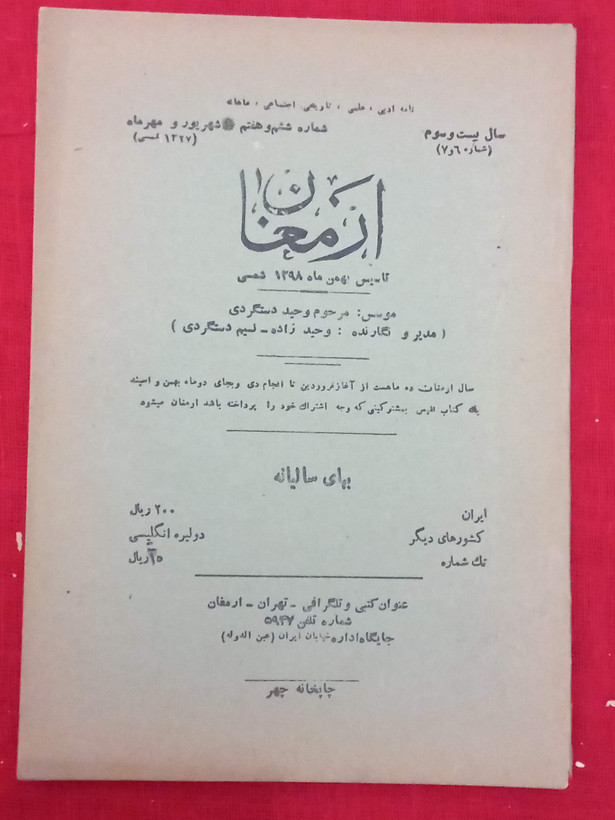 نامه ادبی ، علمی ، تاریخی اجتماعی ، ماهانه
سال بیست و سوم شماره ششم و هفتم شهریور و مهرماه
(شماره ۶و۷) (۱۳۲۷ شمسی)
ارمغان
تاسیس بهمن ماه ۱۲۹۸ شمسی
موسس: مرحوم وحید دستگردی
( مدیر و نگارنده : وحید زاده - نسیم دستگردی )
سال ارمغان ده ماهست از آغاز فروردین تا انجام دی و بجای دو ماه بهمن و اسپند
یک کتاب نفیس بمشترکینی که وجه اشتراک خود را پرداخته باشد ارمغان میشود
بهای سالیانه
ایران ۲۰۰ ریال
کشورهای دیگر دولیره انگلیسی
تک شماره ریال
عنوان کتبی و تلگرافی - تهران - ارمغان
شماره تلفن ۵۹۴۷
جایگاه اداره خیابان ایران (عین الدوله)
چاپخانه چهر